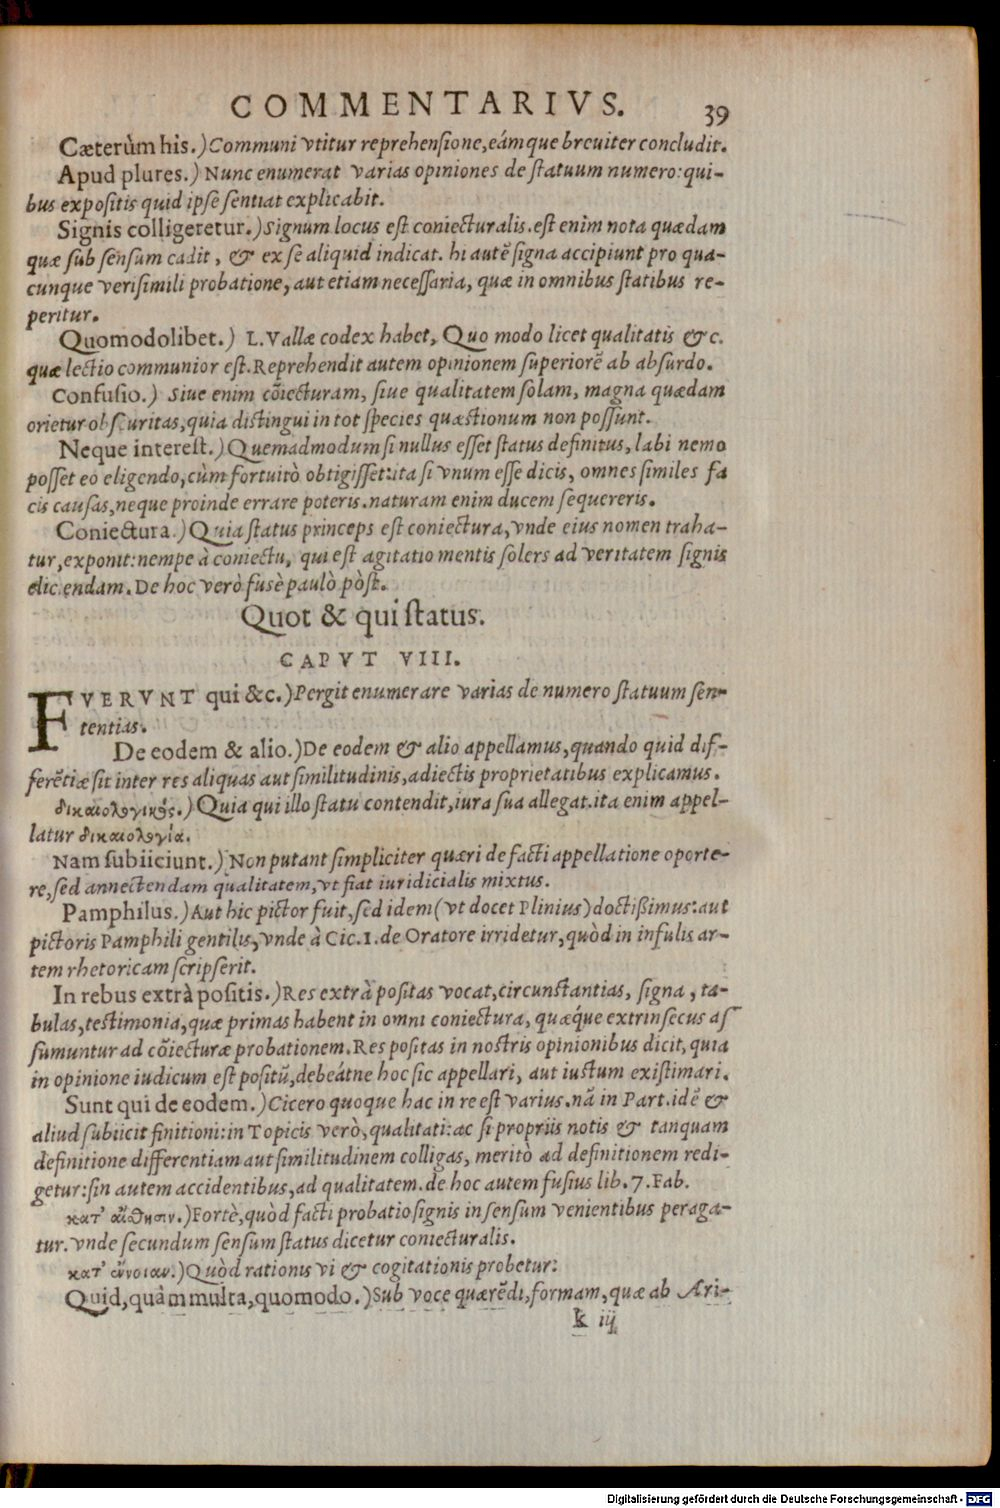 COMMENTARIVS. 39
Cæterùm his.) Communi vtitur reprehensione, eámque breuiter concludit.
Apud plures.) Nunc enumerat varias opiniones de statuum numero: qui-
bus expositis quid ipse sentiat explicabit.
Signis colligeretur.) Signum locus est coniecturalis. est enim nota quædam
quæ sub sensum cadit, & ex se aliquid indicat. hi autē signa accipiunt pro qua-
cunque verisimili probatione, aut etiam necessaria, quæ in omnibus statibus re-
peritur.
Quomodolibet.) L. Vallæ codex habet, Quo modo licet qualitatis &c.
quæ lectio communior est. Reprehendit autem opinionem superiorē ab absurdo.
Confusio.) Siue enim cōiecturam, siue qualitatem solam, magna quædam
orietur obscuritas, quia distingui in tot species quæstionum non possunt.
Neque interest.) Quemadmodum si nullus esset status definitus, labi nemo
posset eo eligendo, cùm fortuitò obtigisset: ita si vnum esse dicis, omnes similes fa
cis causas, neque proinde errare poteris. naturam enim ducem sequereris.
Coniectura.) Quia status princeps est coniectura, vnde eius nomen traha-
tur, exponit: nempe à coniectu, qui est agitatio mentis solers ad veritatem signis
eliciendam. De hoc verò fusè paulò pòst.
Quot & qui status.
CAPVT VIII.
FVERVNT qui &c.) Pergit enumerare varias de numero statuum sen-
tentias.
De eodem & alio.) De eodem & alio appellamus, quando quid dif-
ferētiæ sit inter res aliquas aut similitudinis, adiectis proprietatibus explicamus.
δικαιολογικῆς.) Quia qui illo statu contendit, iura sua allegat. ita enim appel-
latur δικαιολογία.
Nam subiiciunt.) Non putant simpliciter quæri de facti appellatione oporte-
re, sed annectendam qualitatem, vt fiat iuridicialis mixtus.
Pamphilus.) Aut hic pictor fuit, sed idem (vt docet Plinius) doctißimus: aut
pictoris Pamphili gentilis, vnde à Cic. 1. de Oratore irridetur, quòd in infulis ar-
tem rhetoricam scripserit.
In rebus extrà positis.) Res extrà positas vocat, circunstantias, signa, ta-
bulas, testimonia, quæ primas habent in omni coniectura, quæque extrinsecus as
sumuntur ad cōiecturæ probationem. Res positas in nostris opinionibus dicit, quia
in opinione iudicum est positū, debeátne hoc sic appellari, aut iustum existimari.
Sunt qui de eodem.) Cicero quoque hac in re est varius. nā in Part. idē &
aliud subiicit finitioni: in Topicis verò, qualitati: ac si propriis notis & tanquam
definitione differentiam aut similitudinem colligas, meritò ad definitionem redi-
getur: sin autem accidentibus, ad qualitatem. de hoc autem fusius lib. 7. Fab.
κατ’ αἴσθησιν.) Fortè, quòd facti probatio signis in sensum venientibus peraga-
tur. vnde secundum sensum status dicetur coniecturalis.
κατ’ ἔννοιαν.) Quòd rationis vi & cogitationis probetur:
Quid, quàm multa, quomodo.) Sub voce quærēdi, formam, quæ ab Ari-
k iij
Digitalisierung gefördert durch die Deutsche Forschungsgemeinschaft - DFG